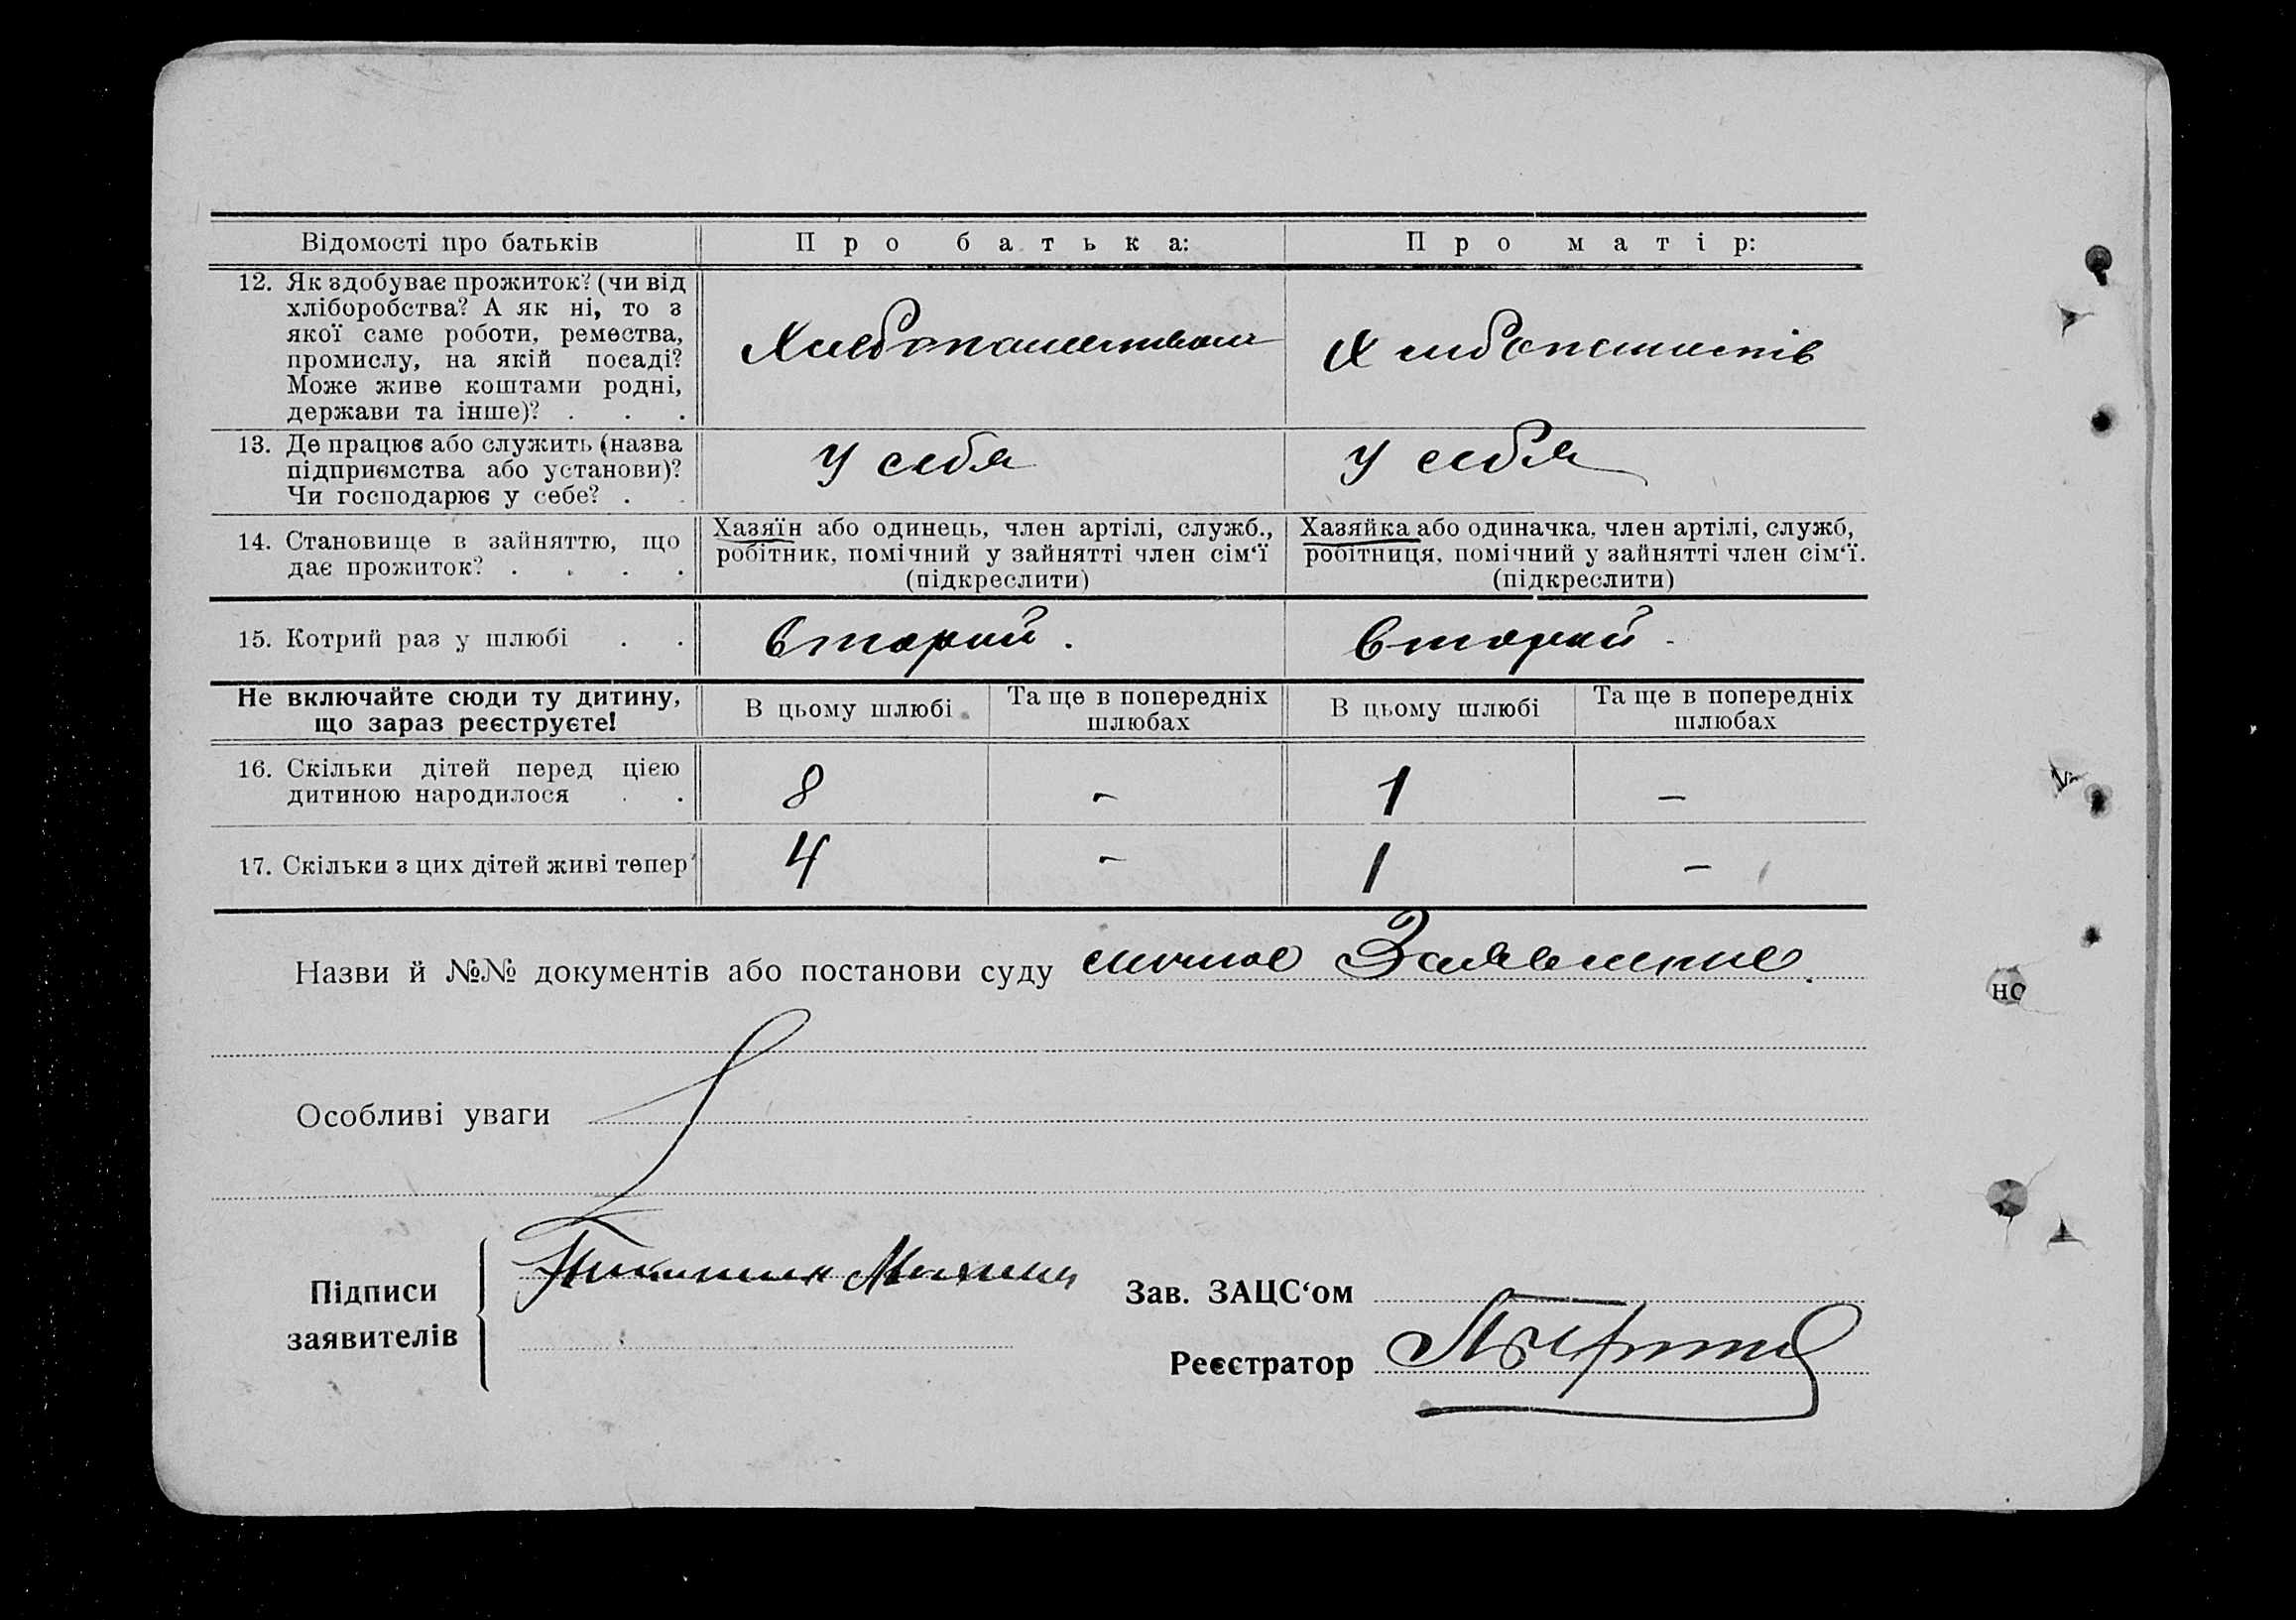 Відомості про батьків
Про батька:
Про матір:
12. Як здобуває прожиток? (чи від
хліборобства? А як ні, то з
якої саме роботи, ремества,
промислу, на якій посаді?
Може живе коштами родні,
держави та інше)? . . .
Хлебопашеством
13. Де працює або служить (назва
підприємства або установи)?
Чи господарює у себе? .
У себя
У себя
14. Становище в зайняттю, що
дає прожиток? . . . .
Хазяїн або одинець, член артілі, служб.,
робітник, помічний у зайнятті член сім‘ї
(підкреслити)
Хазяйка або одиначка, член артілі, служб,
робітниця, помічний у зайнятті член сім‘ї.
(підкреслити)
15. Котрий раз у шлюбі . .
второй.
второй -
Не включайте сюди ту дитину,
що зараз реєструєте!
В цьому шлюбі
Та ще в попередніх
шлюбах
В цьому шлюбі
Та ще в попередніх
шлюбах
16. Скільки дітей перед цією
дитиною народилося . .
8
-
1
-
17. Скільки з цих дітей живі тепер
4
-
1
-
Назви й №№ документів або постанови суду Заявление.
Особливі уваги
Підписи
заявителів
Зав. ЗАЦС‘ом
Реєстратор
но